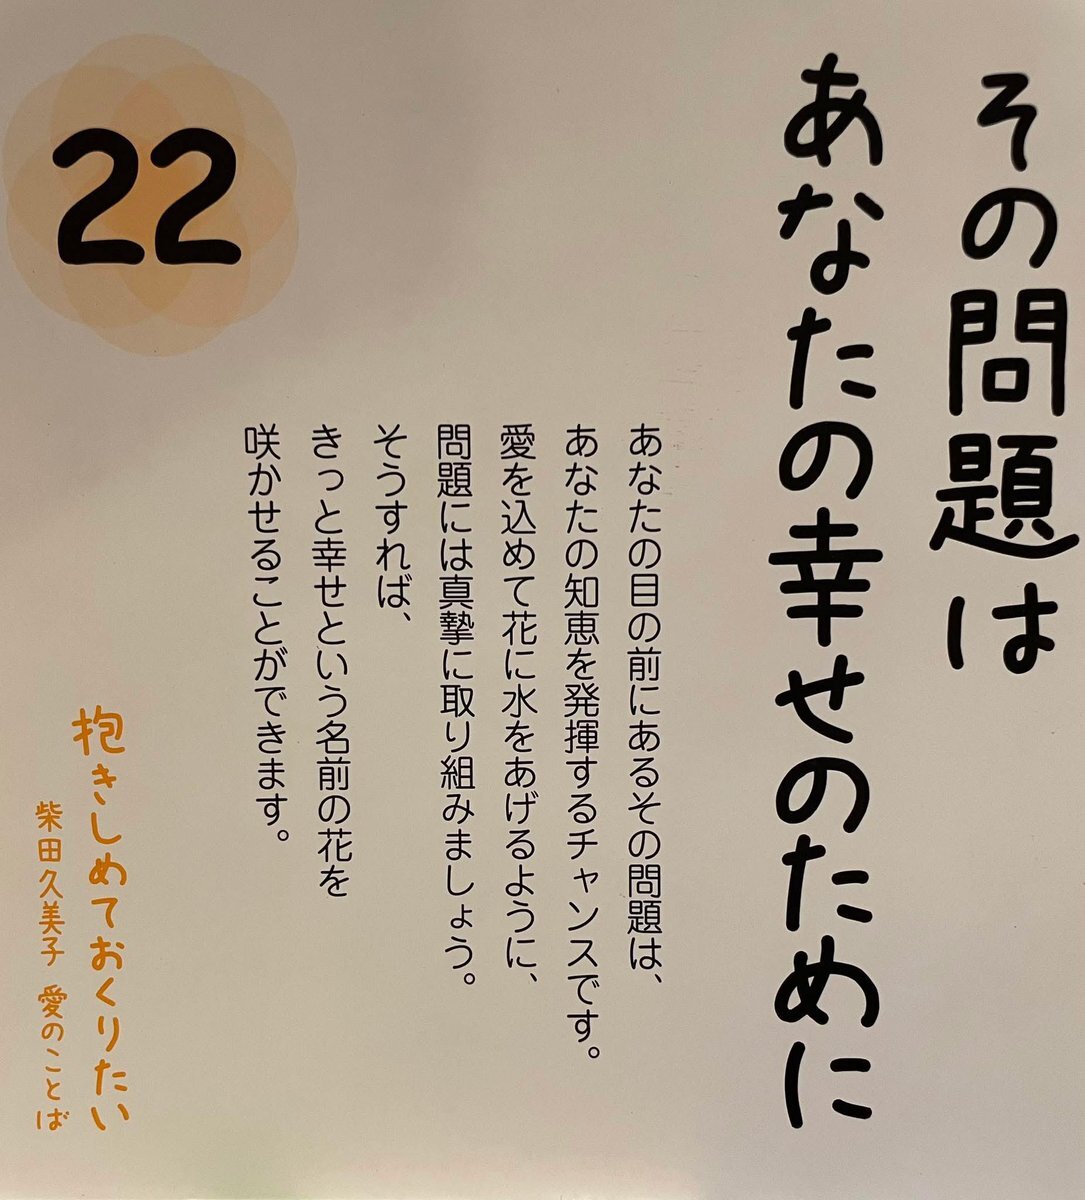 その問題は
あなたの幸せのために
あなたの目の前にあるその問題は、
あなたの知恵を発揮するチャンスです。
愛を込めて花に水をあげるように、
問題には真摯に取り組みましょう。
そうすれば、
きっと幸せという名前の花を
咲かせることができます。
22
抱きしめておくりたい
柴田久美子 愛のことば